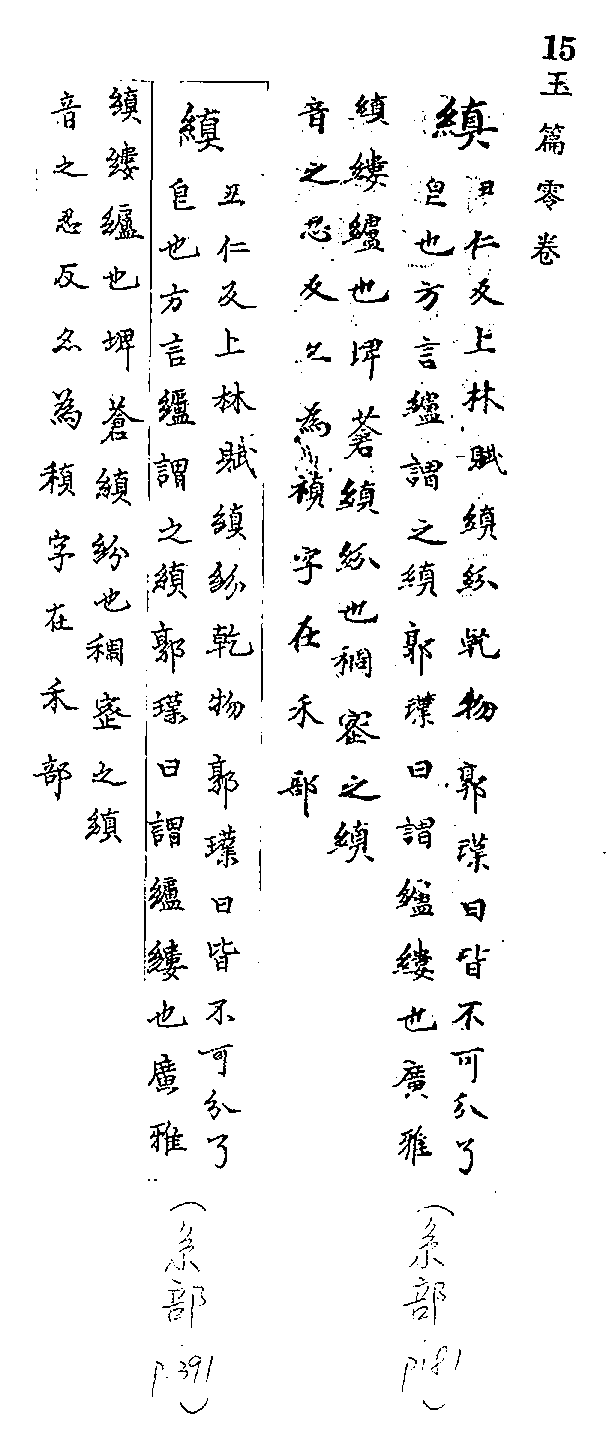 15
玉篇零卷
縝
丑仁反上林賦縝紛軋物郭璞曰皆不可分了
皃也方言纑謂之縝郭璞曰謂纑縷也廣雅
縝縷纑也埤蒼縝紛也稠密之縝
音之忍反亦為稹字在禾部
(糸部 p.181)
縝
丑仁反上林賦縝紛乾物郭璞曰皆不可分了
皃也方言纑謂之縝郭璞曰謂纑縷也廣雅
縝縷纑也埤蒼縝紛也稠密之縝
音之忍反亦為稹字在禾部
(糸部 p.391)